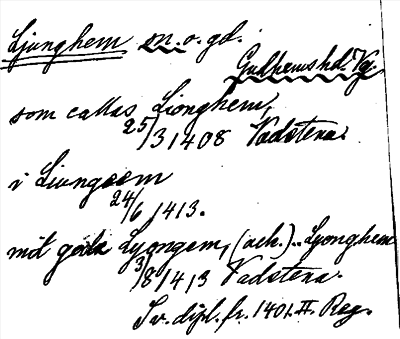 Ljunghem sn. o. gd.
Gudhems hd. Vg.
som callas Lionghem,
25/3 1408 Vadstena.
i Liungeem
24/6 1413.
mit gotz Lyongem, (ack.).. Lyonghem
3/8 1413 Vadstena.
Sv. dipl. fr. 1401. II. Reg.